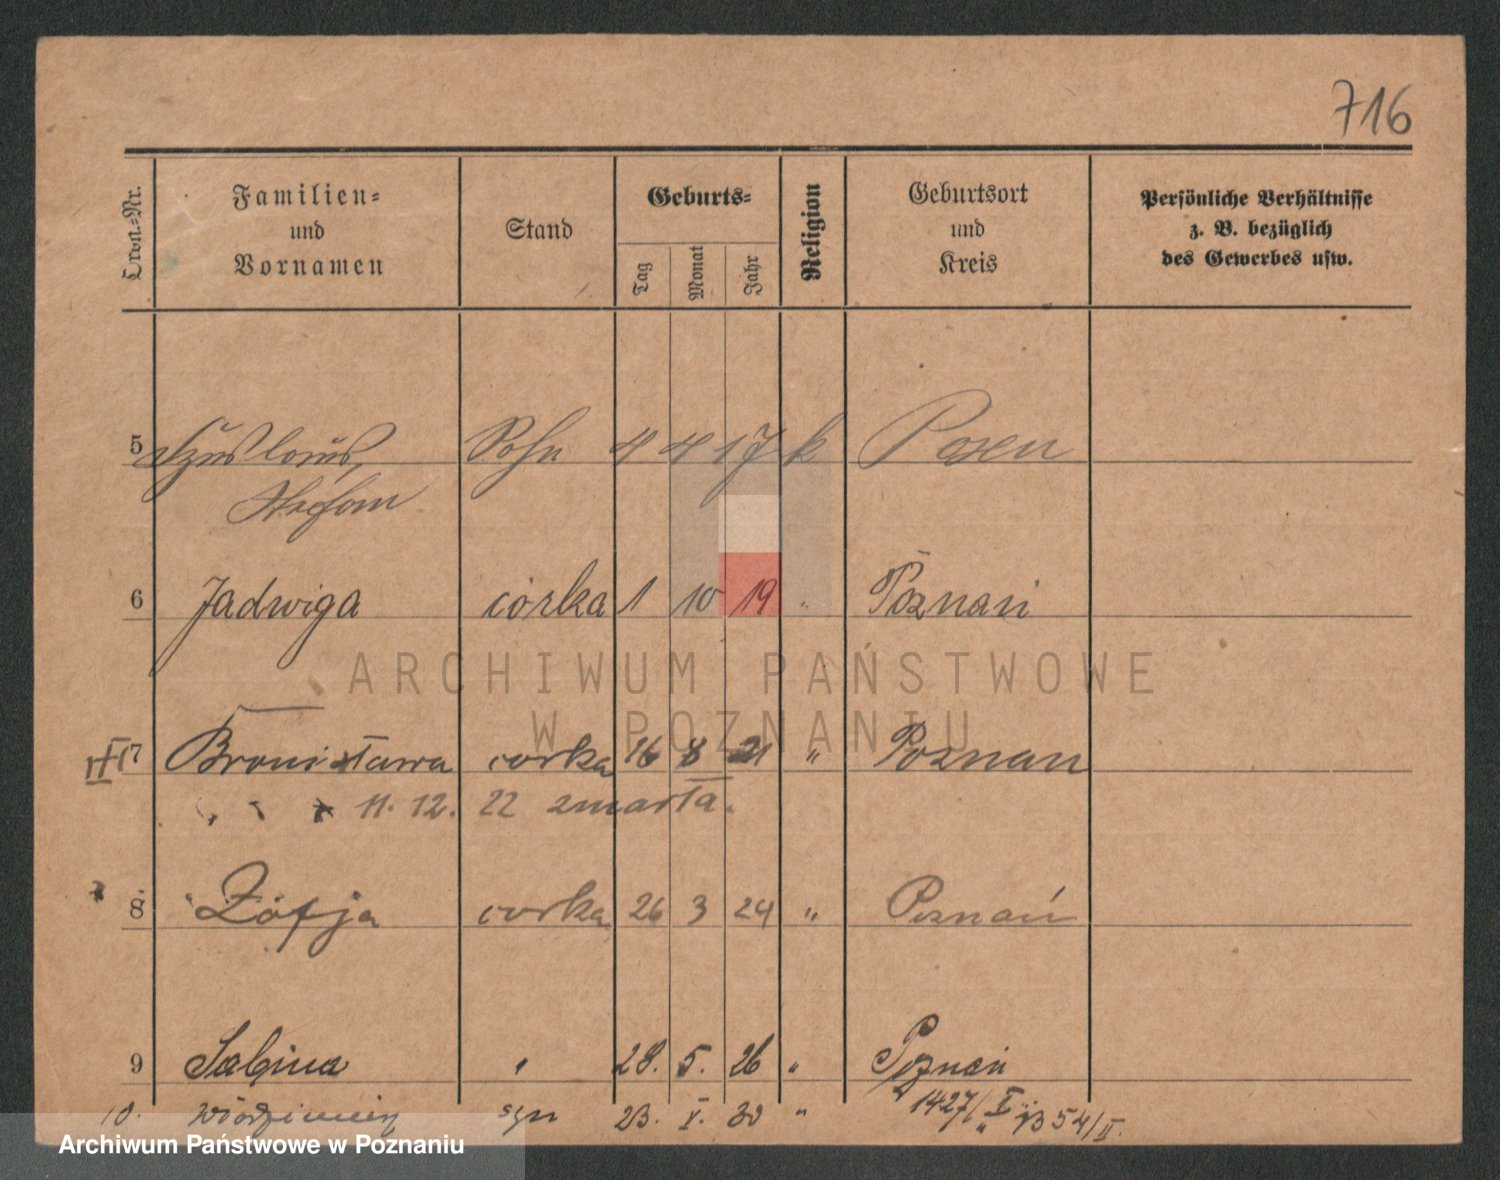 716
Ordn.-Nr. Familien- und Vornamen Stand Geburts- Tag Monat Jahr Religion Geburtsort und Kreis Persönliche Verhältnisse z. B. bezüglich des Gewerbes usw.
5 Sohn 4 4 17 k Posen
6 Jadwiga córka 1 10 19 " Poznań
ARCHIWUM PAŃSTWOWE
W POZNANIU
7 Bronisława corka 16 8 21 " Poznan
11. 12. 22 zmarła.
8 Zofja corka 26 3 24 " Poznań
9 Sabina " 28. 5. 26 " Poznań
10. Włodzimierz syn 23. V. 30 " 1427/II 1354/II.
Archiwum Państwowe w Poznaniu